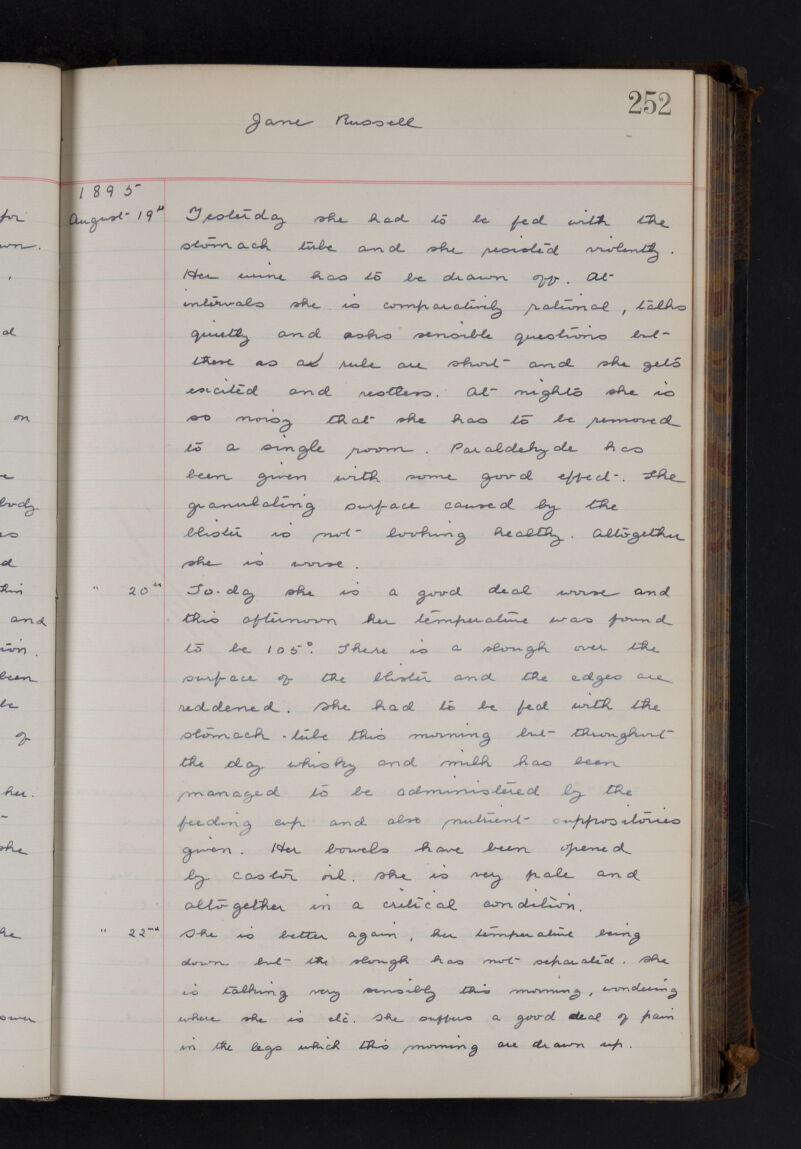 252
Jane Russell
1895
August 19th Yesterday she had to be fed with the
stomach tube and she resisted violently.
Her urine has to be drawn off. At
intervals she is comparatively rational, talks
quietly and asks sensible questions but
these as a rule are short and she gets
excited and restless. At nights she is
so noisy that she has to be removed
to a single room. Paraldehyde has
been given with some good effect. The
granulating surface caused by the
blister is not looking healthy. Altogether
she is worse.
" 20th To-day she is a good deal worse and
this afternoon her temperature was found
to be 105°. There is a slough over the
surface of the blister and the edges are
reddened. She had to be fed with the
stomach-tube this morning but throughout
the day whisky and milk has been
managed to be administered by the
feeding cup and also nutrient suppositories
given. Her bowels have been opened
by castor oil. She is very pale and
altogether in a critical condition.
" 22nd She is better again, her temperature being
down but the slough has not separated. She
is talking very sensibly this morning, wondering
where she is etc. She suffers a good deal of pain
in the legs which this morning are drawn up.
for
own.
,
d
on
e
body
es
d
this
and
tion.
been
be
of
her.
she
he